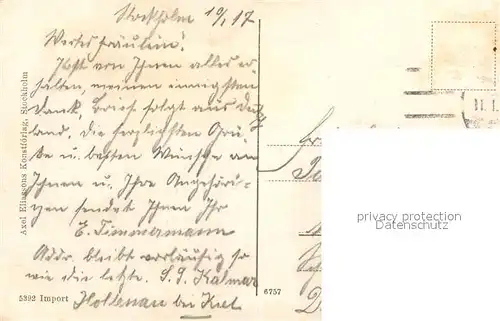 Stockholm 10/1 17
Wertes Fräulein!
Post von Ihnen alles er
halten, meinen innigsten
Dank, Brief folgt aus Deutsch
land, die herzlichsten Grü
ße u. besten Wünsche an
Ihnen u. Ihre Angehöri
gen sendet Ihnen Ihr
E. Timmermann
Addr. bleibt vorläufig so
wie die letzte. S. S. Kalmar
Holtenau bei Kiel
Axel Eliassons Konstförlag, Stockholm
5392 Import
6757
privacy protection
www.ansichtskartenversand.com